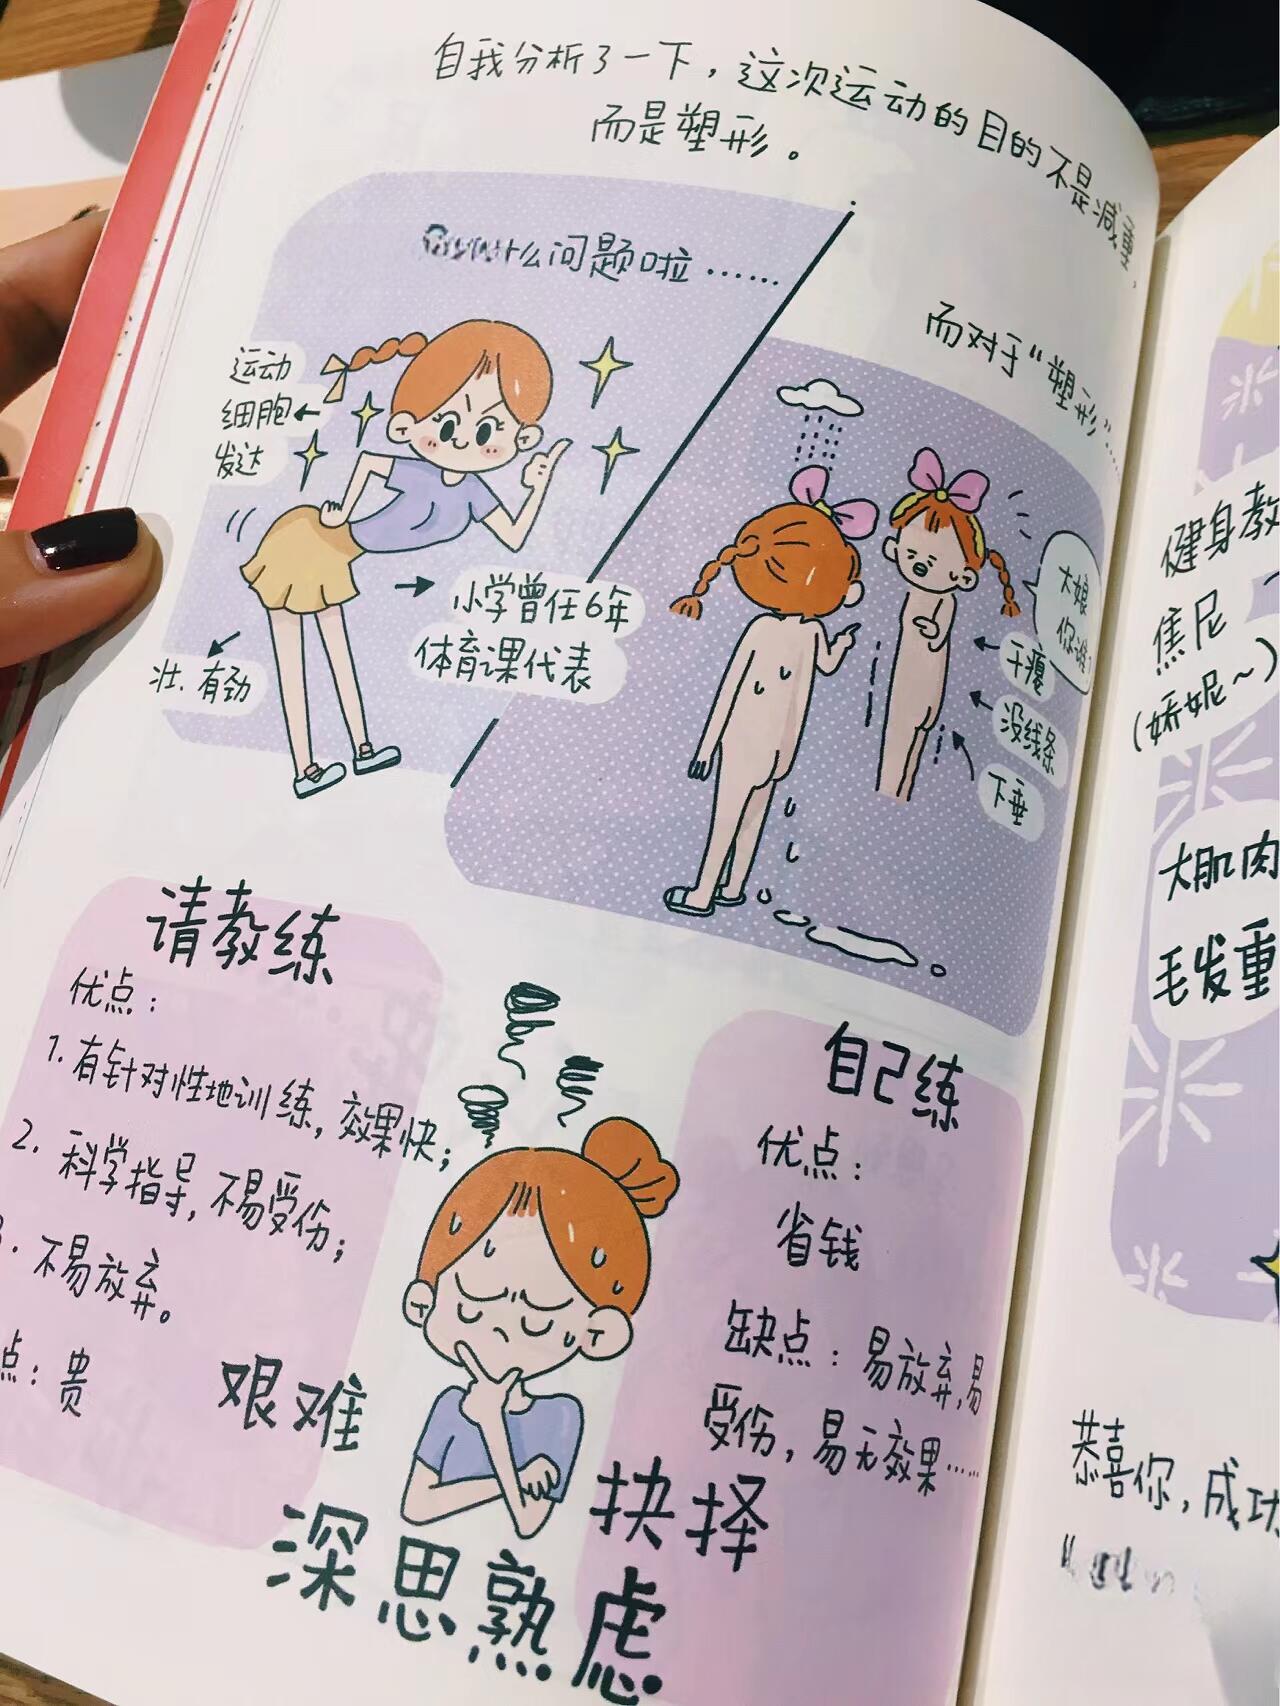 自我分析了一下，这次运动的目的不是减重，
而是塑形。
么问题啦……
运动
细胞
发达
小学曾任6年
体育课代表
壮.有劲
而对于“塑形”……
大娘
你谁?
干瘪
没线条
下垂
请教练
优点：
1.有针对性地训练，效果快；
2.科学指导，不易受伤；
3.不易放弃。
点：贵
自己练
优点：
省钱
缺点：易放弃，易
受伤，易无效果……
艰难
抉择
深思熟虑
健身教
焦尼
(娇妮~)
大肌肉
毛发重
恭喜你，成功